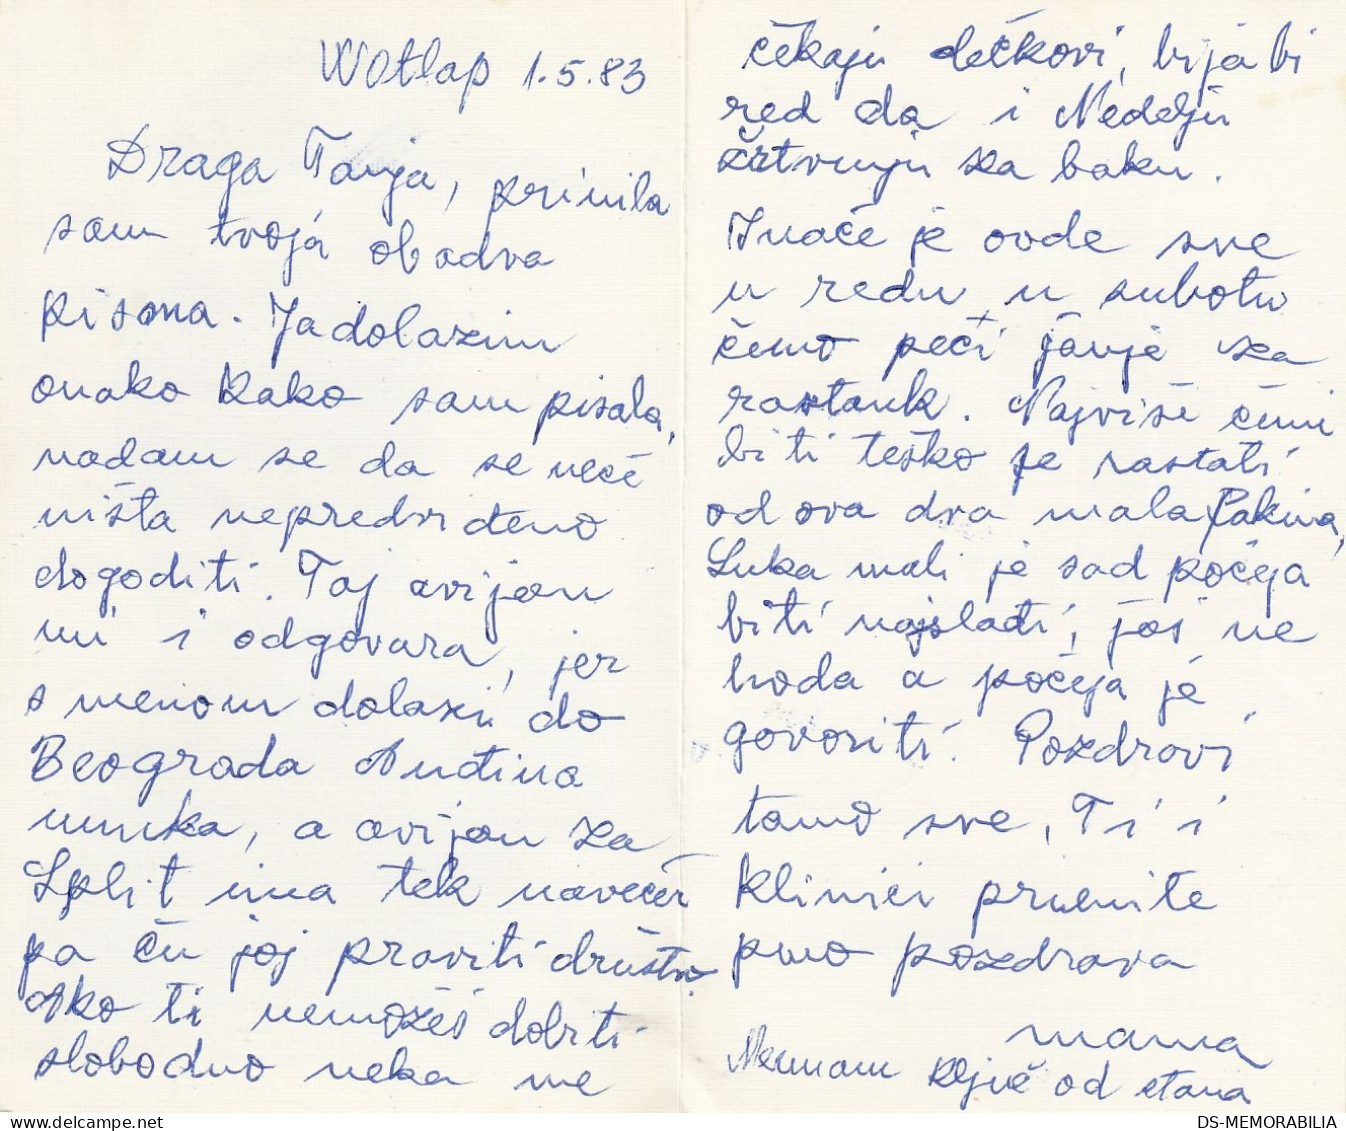 Watlap 1.5.83
Draga Tanja, primila
sam tvoja obadva
pisma. Ja dolazim
onako kako sam pisala,
nadam se da se neće
ništa nepredviđeno
dogoditi. Taj avijon
mi i odgovara, jer
s menom dolazi do
Beograda Anđina
unuka, a avijon za
Split ima tek navečer
pa ću joj praviti društvo
Ako ti nemožeš dobiti
slobodno neka me
čekaju dečkovi, bija bi
red da i Nedelju
žrtvuju za baku.
Inače je ovde sve
u redu u subotu
ćemo peći janje za
rastank. Najviše će mi
biti teško se rastati
od ova dva mala
Luka mali je sad počeja
biti najslađi, još ne
hoda a počeja je
govoriti. Pozdravi
tamo sve, Ti i
klinici primite
puno pozdrava
mama
Nemam ključ od stana
DS-MEMORABILIA